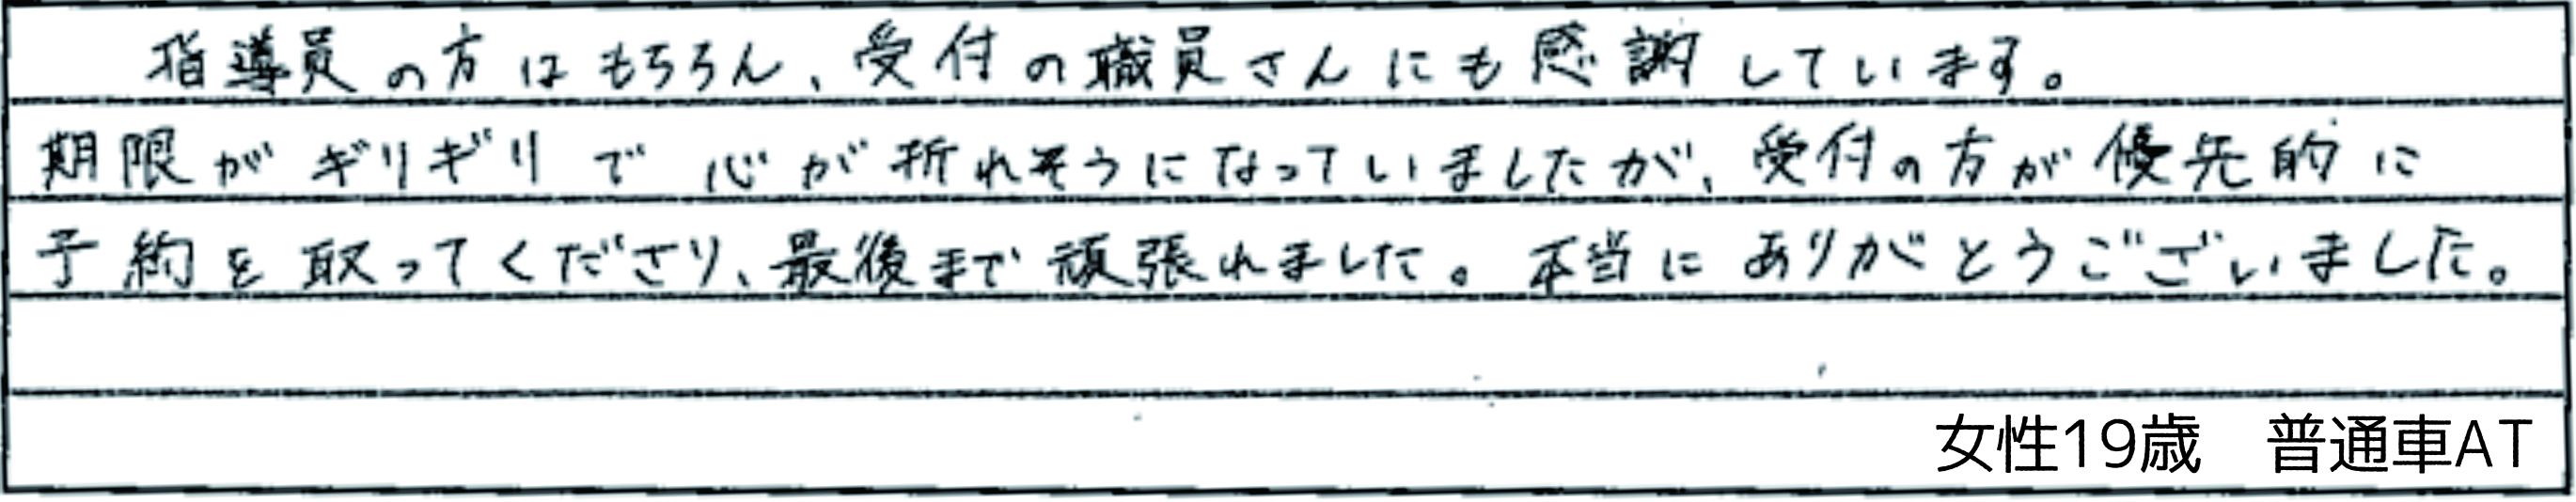 指導員の方はもちろん、受付の職員さんにも感謝しています。
期限がギリギリで心が折れそうになっていましたが、受付の方が優先的に
予約を取ってくださり、最後まで頑張れました。本当にありがとうございました。
女性19歳　普通車AT